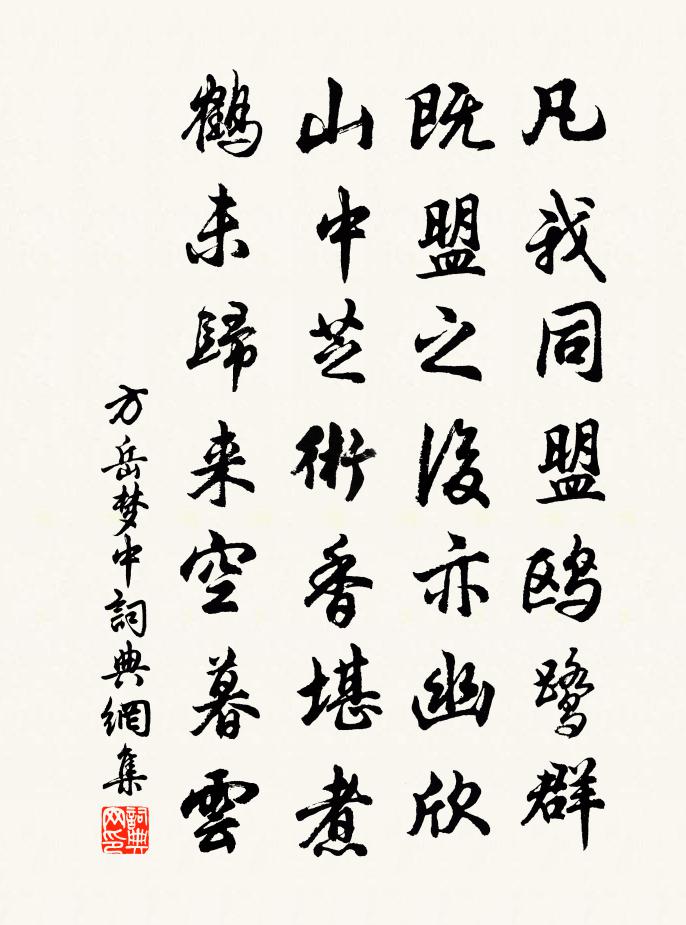 凡我同盟鸥鹭群
既盟之後亦幽欣
山中芝術香堪煮
鹤未歸来空暮雲
方岳梦中詞典網集
詞典网印